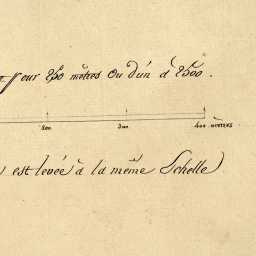 pour 250 mètres ou d'un à 2500.
200 300 400 METRES
est levée à la même Schelle